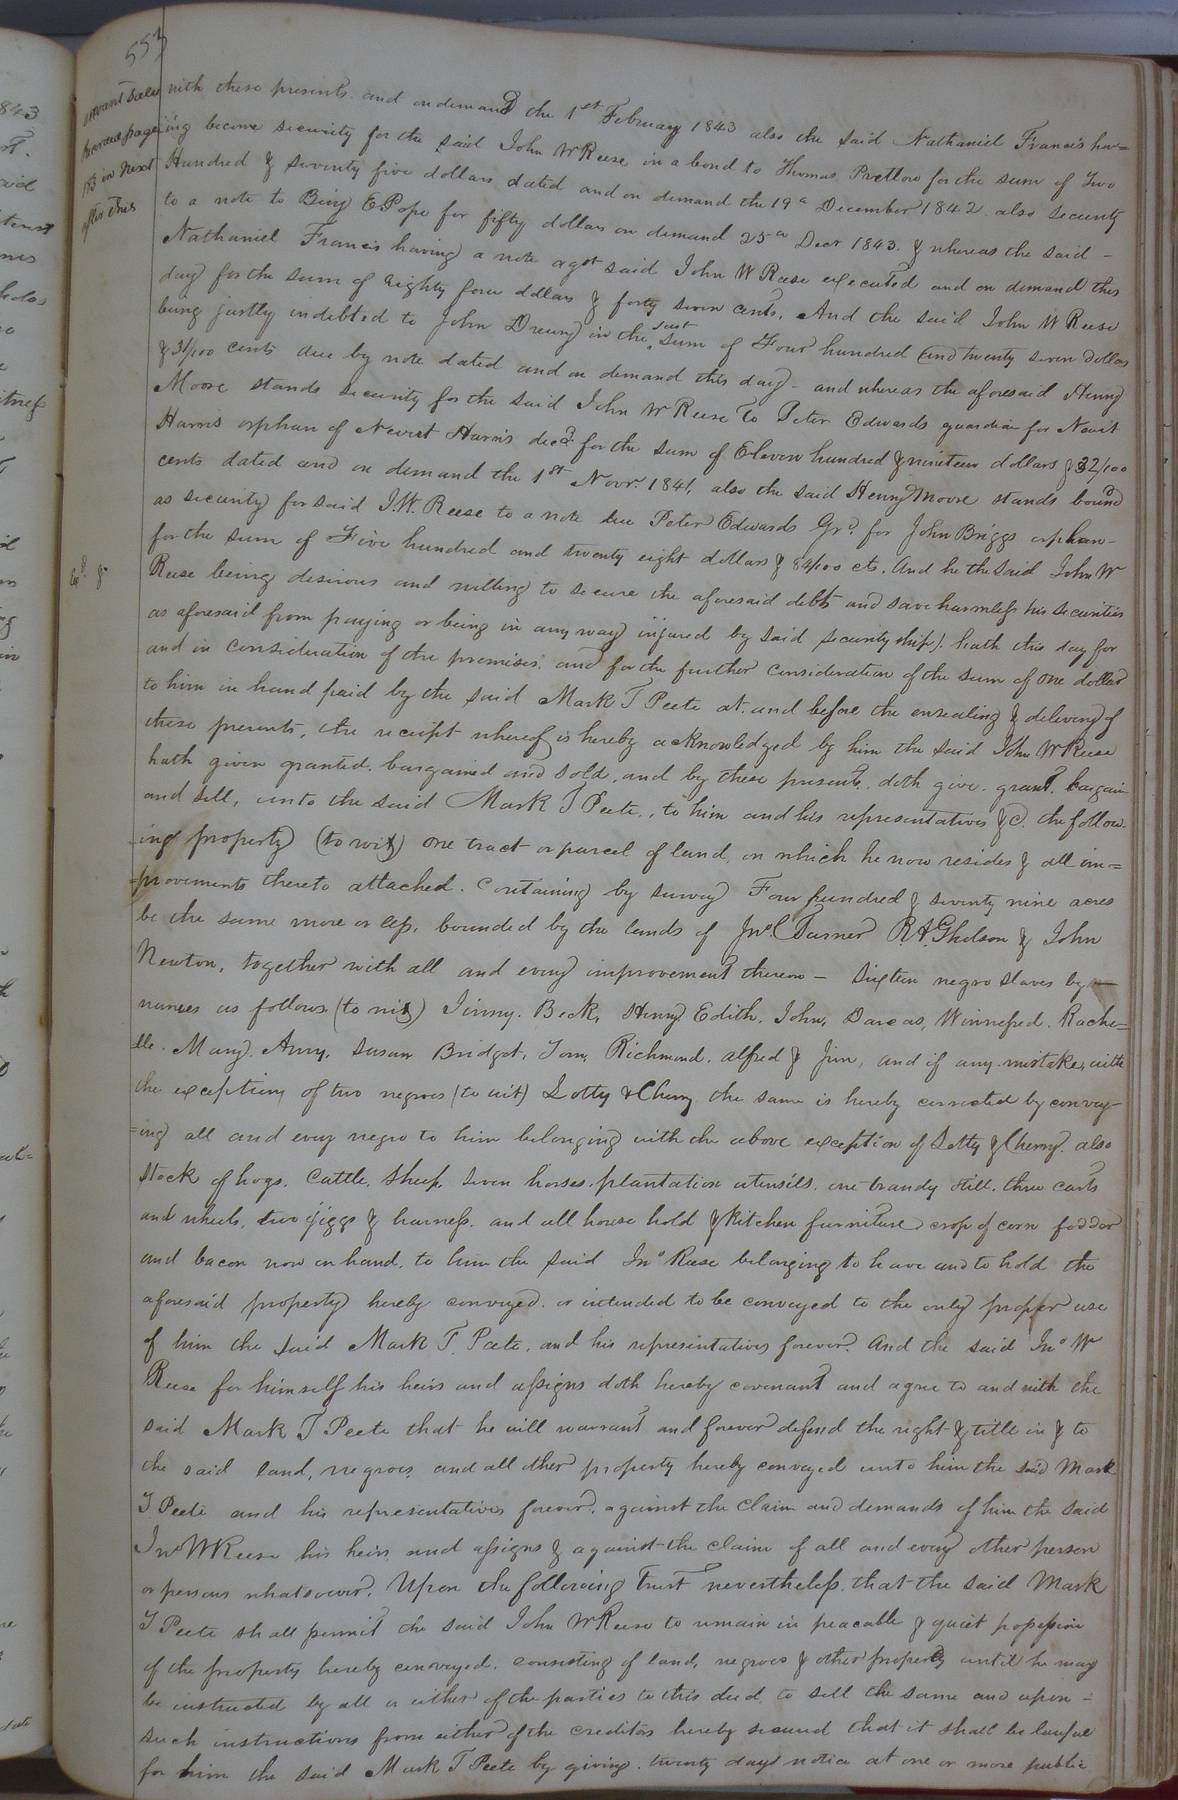 553
with these presents and on demand the 1st February 1843 also the said Nathaniel Francis hav=
ing become security for the said John W Reese in a bond to Thomas Pretlow for the sum of Two
Hundred & seventy five dollars dated and on demand the 19th December 1842 also security
to a note to Benj E. Pope for fifty dollars on demand 25th Decr 1843. & whereas the said -
Nathaniel Francis having a note agst said John W Reese executed and on demand this
day for the sum of Eighty four dollars & forty seven cents. And the said John W Reese
being justly indebted to John Drewry in the just sum of Four hundred and twenty seven dollars
& 31/100 cents due by note dated and on demand this day - and whereas the aforesaid Henry
Moore stands security for the said John W Reese to Peter Edwards guardian for Newit
Harris orphan of Newit Harris decd. for the sum of Eleven hundred & nineteen dollars & 32/100
cents dated and on demand the 1st Novr. 1841, also the said Henry Moore stands bound
as security for said J.W. Reese to a note due Peter Edwards Gr. for John Briggs orphan-
for the sum of Five hundred and twenty eight dollars & 84/100 cts. And he the said John W
Reese being desirous and willing to secure the aforesaid debts and save harmless his securities
as aforesaid from paying or being in any way injured by said security ship). hath this day for
and in consideration of the premises, and for the further consideration of the sum of one dollar
to him in hand paid by the said Mark T Peete at and before the ensealing & delivery of
these presents, the receipt whereof is hereby acknowledged by him the said John W Reese
hath given granted, bargained and sold, and by these presents, doth give, grant, bargain
and sell, unto the said Mark T Peete, to him and his representatives &c. the follow-
ing property (to wit) one tract or parcel of land, on which he now resides & all im=
=provements thereto attached. Containing by survey Four hundred & seventy nine acres
be the same more or less, bounded by the lands of Jno C Turner R A Gholson & John
Newton, together with all and every improvement thereon - Sixteen negro slaves by -
names as follows (to wit) Jinny, Beck, Henry, Edith, John, Darcas, Winnefred, Rache=
=lle, Mary, Amy, Susan Bridget, Tom, Richmond, Alfred & Jim, and if any mistake, with
the exception, of two negroes (to wit) Lotty & Cherry the same is hereby corrected by convey-
=ing all and every negro to him belonging with the above exception of Lotty & Cherry. also
Stock of hogs, Cattle, Sheep, Seven horses, plantation utensils, one brandy still, three carts
and wheels, two giggs & harness, and all house hold & kitchen furniture crop of corn fodder
and bacon now on hand, to him the said Jno Reese belonging to have and to hold the
aforesaid property hereby conveyed, or intended to be conveyed to the only proper use
of him the said Mark T. Peete, and his representatives forever. And the said Jno W
Reese for himself his heirs and assigns doth hereby covenant and agree to and with the
said Mark T Peete that he will warrant and forever defend the right & title in & to
the said land, negroes, and all other property hereby conveyed unto him the said Mark
T Peete and his representatives forever, against the claim and demands of him the said
Jno W Reese his heirs and assigns & against the claim of all and every other person
or persons whatsoever. Upon the following Trust nevertheless, that the said Mark
T Peete shall permit the said John W Reese to remain in peacable & quiet possession
of the property hereby conveyed, consisting of land, negroes & other property until he may
be instructed by all or either of the parties to this deed, to sell the same and upon -
such instructions from either of the creditors hereby secured that it shall be lawful
for him the said Mark T Peete by giving twenty days notice at one or more public